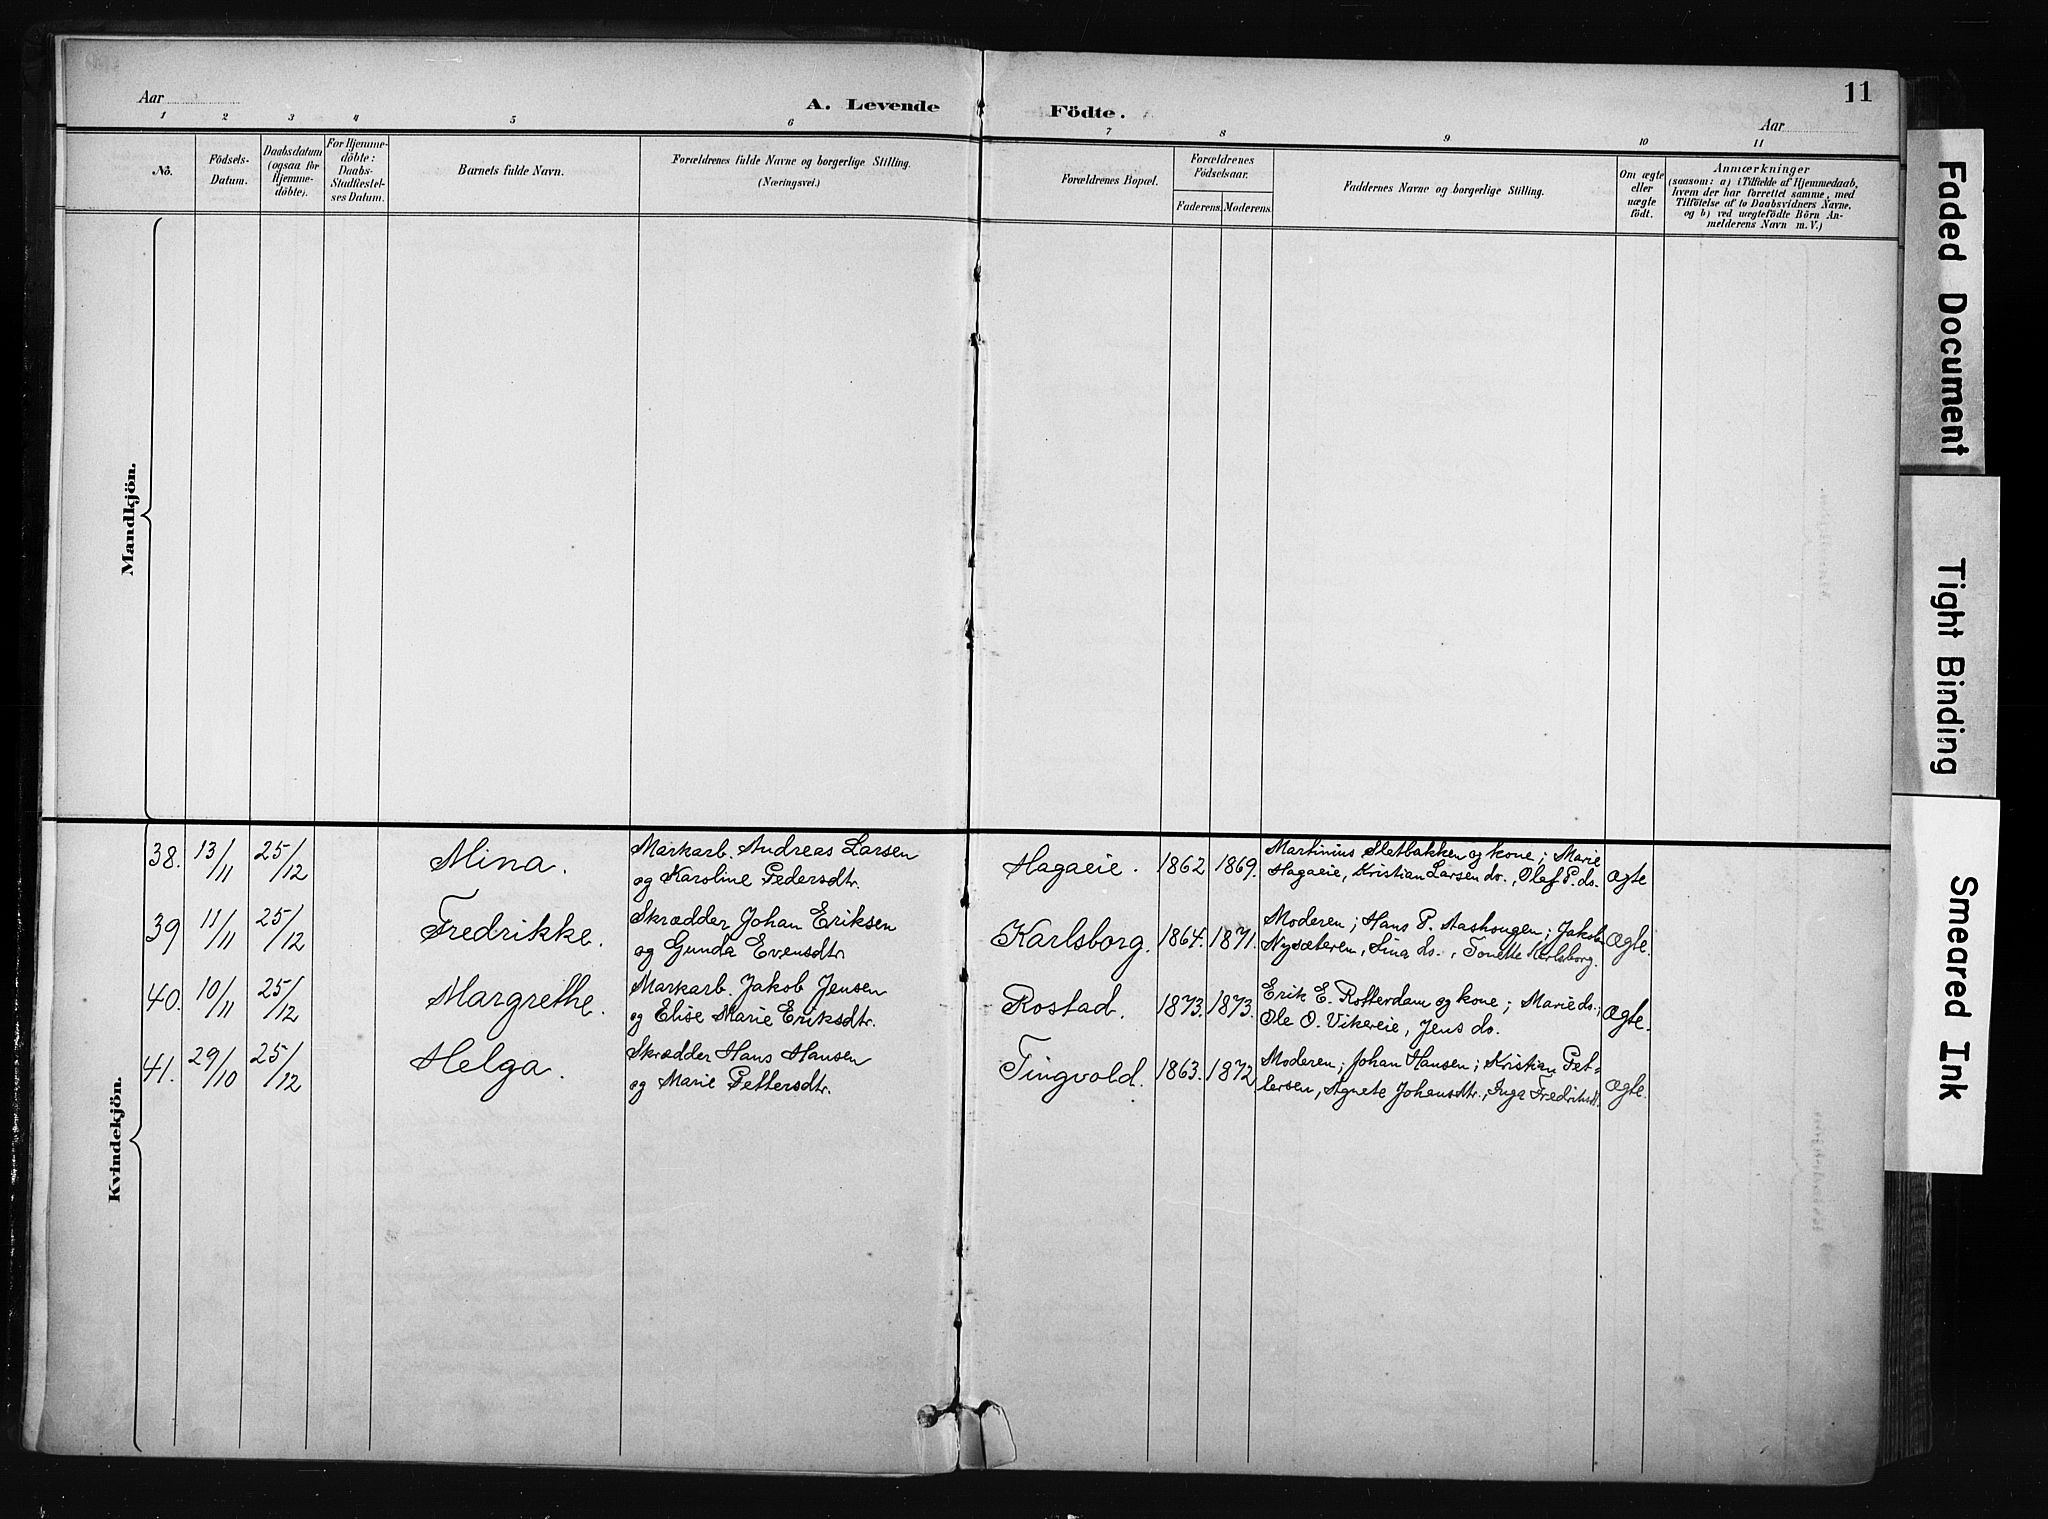 11
Aar
A. Levende
Födte.
Aar
1 2 3 4 5 6 7 8 9 10 11
No.
Födsels-Datum.
Daabsdatum (ogsaa for Hjemme-döbte).
For Hjemme-döbte: Daabs-Stadfæstel-ses Datum.
Barnets fulde Navn.
Forældrenes fulde Navne og borgerlige Stilling.
(Næringsvei.)
Forældrenes Bopæl.
Forældrenes Födselsaar.
Faderens. Moderens.
Faddernes Navne og borgerlige Stilling.
Om ægte eller uægte födt.
Anmærkninger
(saasom: a) i Tilfælde af Hjemmedaab,
hvem der har forrettet samme, med
Tilföielse af to Daabsvidners Navne.
og b) ved uægtefödte Börn An-
melderens Navn m.V.)
Mandkjön.
Kvindekjön.
38. 13/11 25/12 Mina. Markarb. Andreas Larsen
og Karoline Pedersdtr. Hagaeie. 1862 1869. Martinius Sletbakken og kone; Marie
Hagaeie, Kristian Larsen do., Olaf P. do. Ægte
39 11/11 25/12 Fredrikke. Skrædder Johan Eriksen
og Gunda Evensdtr. Karlsborg. 1864. 1871. Moderen; Hans P. Aashougen; Jakob
Nysæteren, Lina do., Tonette Karlsborg. Ægte.
40. 10/11 25/12 Margrethe. Markarb. Jakob Jensen
og Elise Marie Eriksdtr. Rostad. 1873. 1873. Erik E. Rotterdam og kone; Marie do.;
Ole O. Vikereie, Jens do. Ægte.
41. 29/10 25/12 Helga. Skrædder Hans Hansen
og Marie Pettersdtr. Tingvold. 1863. 1872 Moderen; Johan Hansen; Kristian Pet-
tersen, Agnete Johansdtr., Inga Ægte.
Faded Document
Tight Binding
Smeared Ink